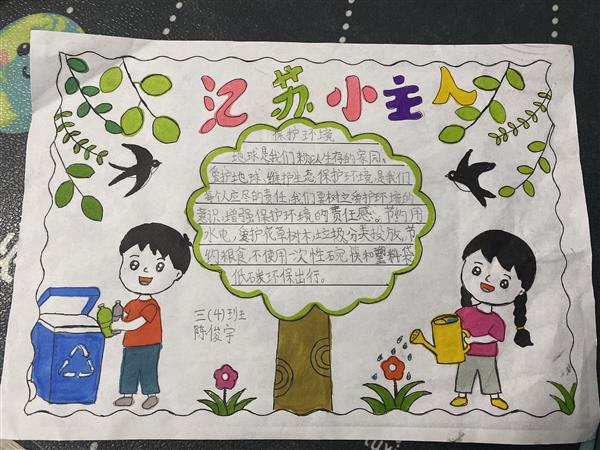 江苏小主人
保护环境
地球是我们赖以生存的家园，
爱护地球、维护生态保护环境，是我们
每个人应尽的责任，我们要树立爱护环境的
意识，增强保护环境的责任感。节约用
水电，爱护花草树木，垃圾分类投放，节
约粮食，不使用一次性碗、筷和塑料袋
低碳环保出行。
三(4)班
陈俊宇